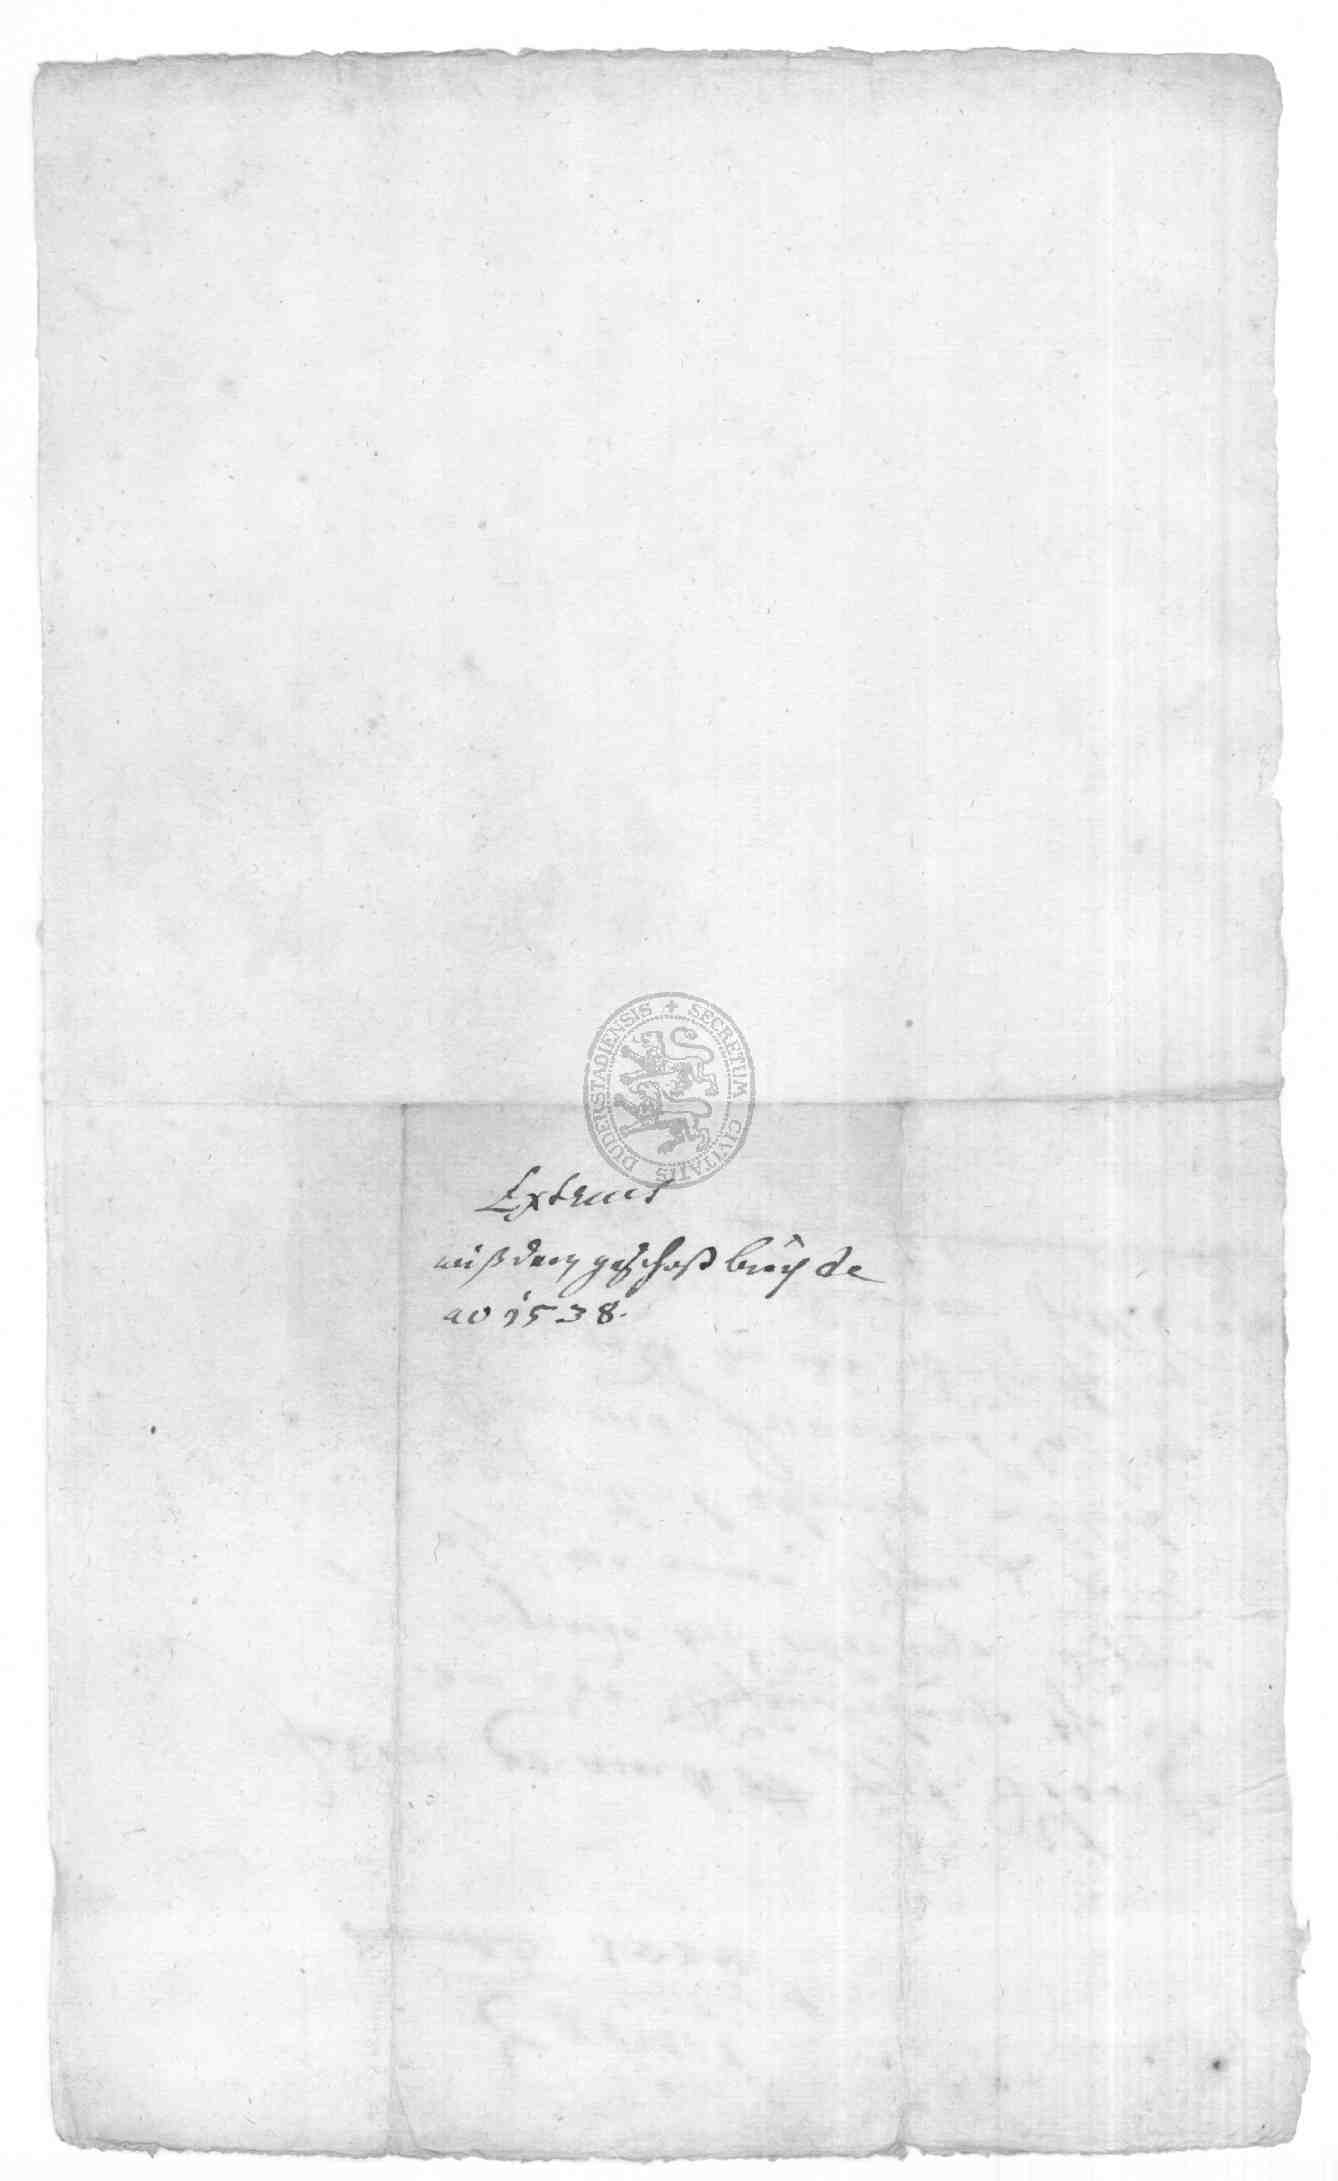 SECRETUM CIVITATIS DUDERSTADIENSIS
Extract
auß dem geschoßbuch de
ao 1538.